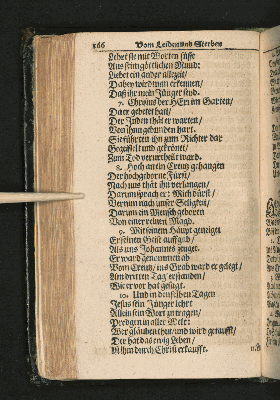 166 Vom Leiden und Sterben
Lehret sie mit Worten süsse
Aus sein göttlichen Mund:
Liebet ein ander allezeit/
Dabey wird man erkennen/
Daß ihr mein Jünger seyd.
7. Christus der HErr im Garten/
Da er gebetet hatt/
Der Jüden that er warten/
Von ihn gebunden hart.
Sie führten ihn zum Richter dar
Gegeisselt und gekrönet/
Zum Tod verurtheilt ward.
8. Hoch an ein Creutz gehangen
Der hochgeborne Fürst/
Nach uns that ihn verlangen/
Darum sprach er: Mich dürst/
Vernim nach unser Seligkeit/
Darum ein Mensch geboren
Von einer reinen Magd.
9. Mit seinem Häupt geneiget
Er seinen Geist auffgab/
Als uns Johannes zeuget.
Er ward genommen ab
Vom Creutz/ ins Grab ward er gelegt/
Am dritten Tag erstanden/
Wie er vor hat gesagt.
10. Und in denselben Tagen
Jesus sein Jünger lehrt
Allein sein Wort zu tragen/
Predgen in aller Welt:
Wer gläuben thut und wird getaufft/
Der hat das ewig Leben/
Ist ihm durch Christ erkaufft.